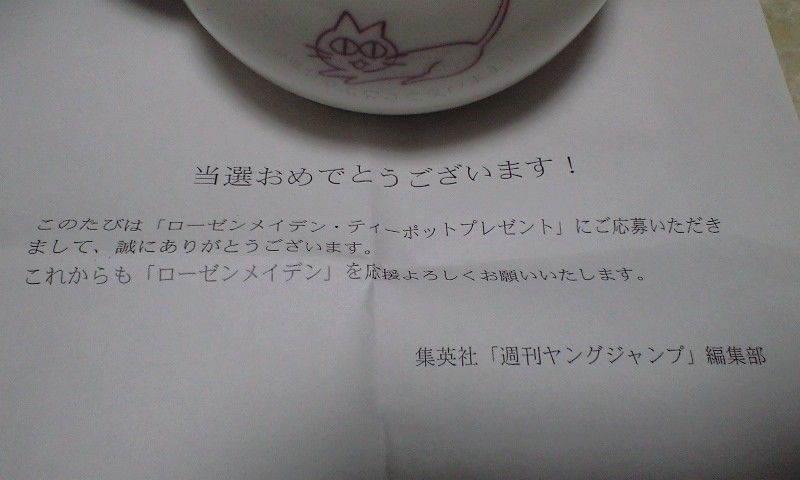 当選おめでとうございます！
このたびは「ローゼンメイデン・ティーポットプレゼント」にご応募いただき
まして、誠にありがとうございます。
これからも「ローゼンメイデン」を応援よろしくお願いいたします。
集英社「週刊ヤングジャンプ」編集部